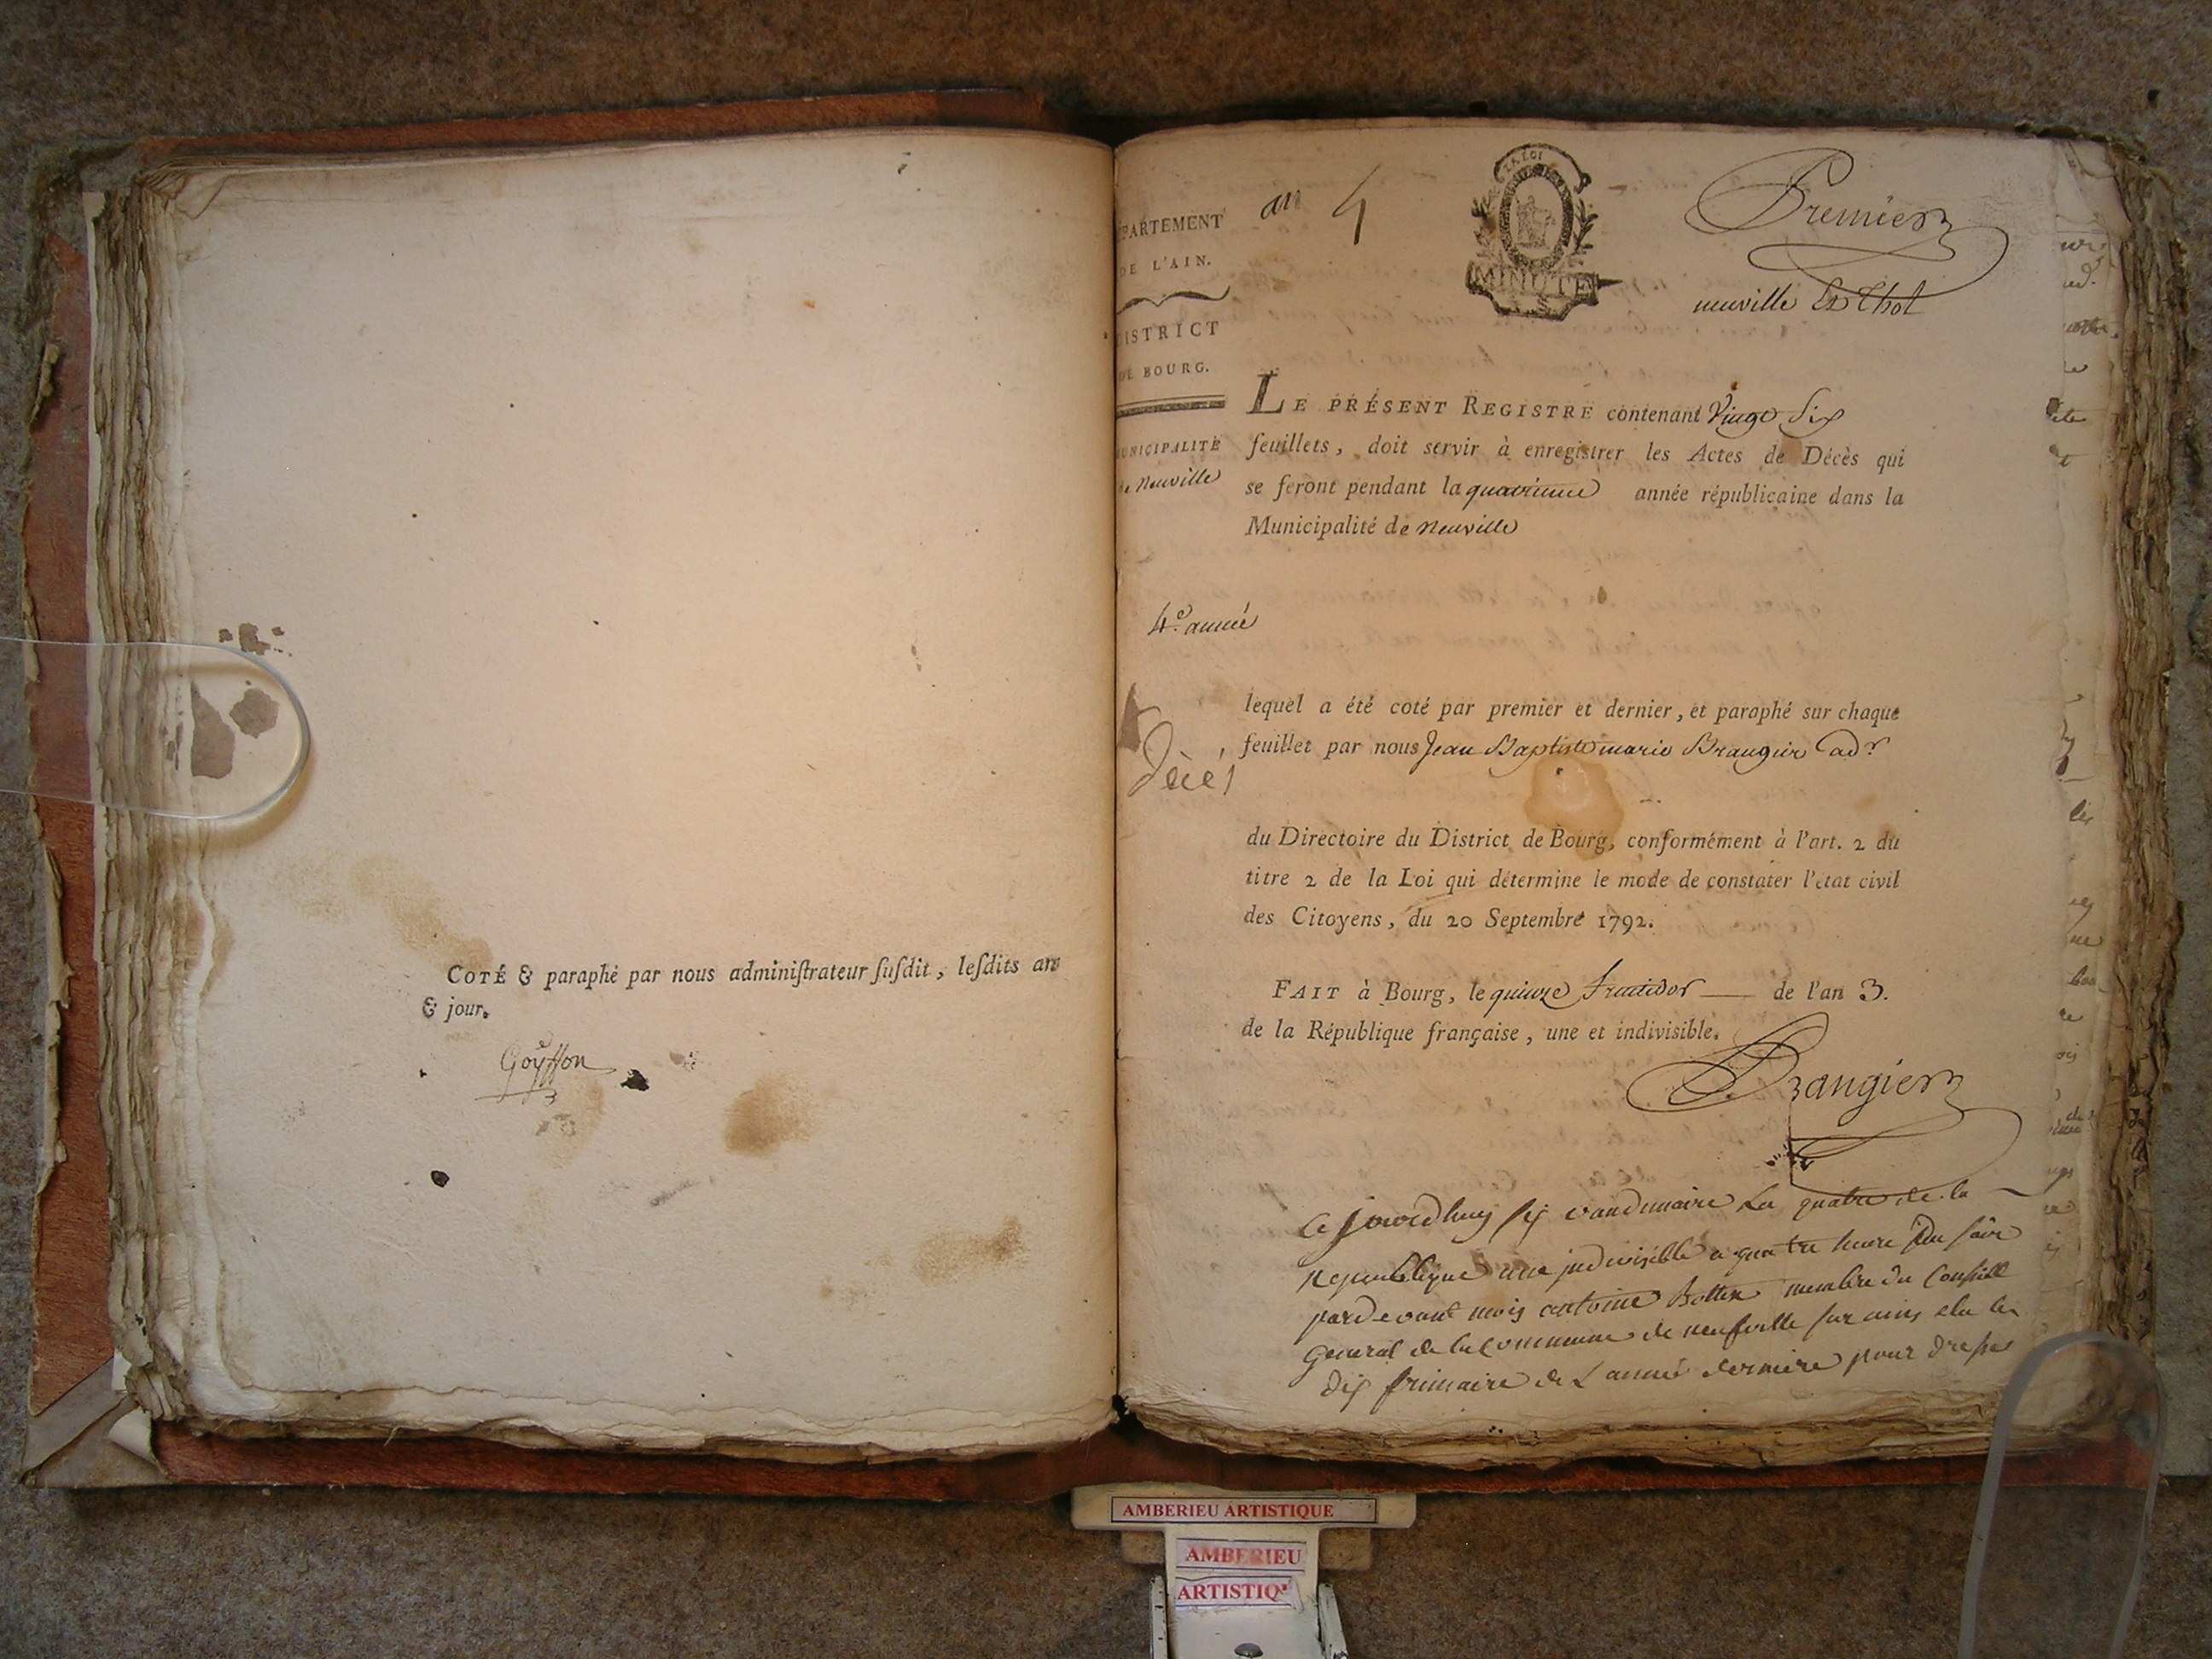 COTÉ & paraphé par nous adminiſtrateur ſuſdit, leſdits an
& jour.
Goyffon
an 4
LA LOI
MINUTE
Premier
neuville Et Thol
PARTEMENT
DE L'AIN.
DISTRICT
DE BOURG.
UNICIPALITÉ
de Neuville
LE PRÉSENT REGISTRE contenant Vingt Six
feuillets, doit servir à enregistrer les Actes de Décès qui
se feront pendant la quatrieme année républicaine dans la
Municipalité de Neuville
4e année
Décés
lequel a été coté par premier et dernier, et paraphé sur chaque
feuillet par nous Jean Baptiste marie Brangier adr
du Directoire du District de Bourg, conformément à l'art. 2 du
titre 2 de la Loi qui détermine le mode de constater l'état civil
des Citoyens, du 20 Septembre 1792.
FAIT à Bourg, le quinze fructidor de l'an 3.
de la République française, une et indivisible.
Brangier
Ce jourdhuy six vandemaire La quatre de la
Republique une jndivisible a quatre heure Du soir
pardevant mois antoine Botten membre du Conseill
General de la Commune de neufville sur ains elu le
dix frimaire de L année derniere pour dresser
AMBERIEU ARTISTIQUE
AMBERIEU
ARTISTIQ